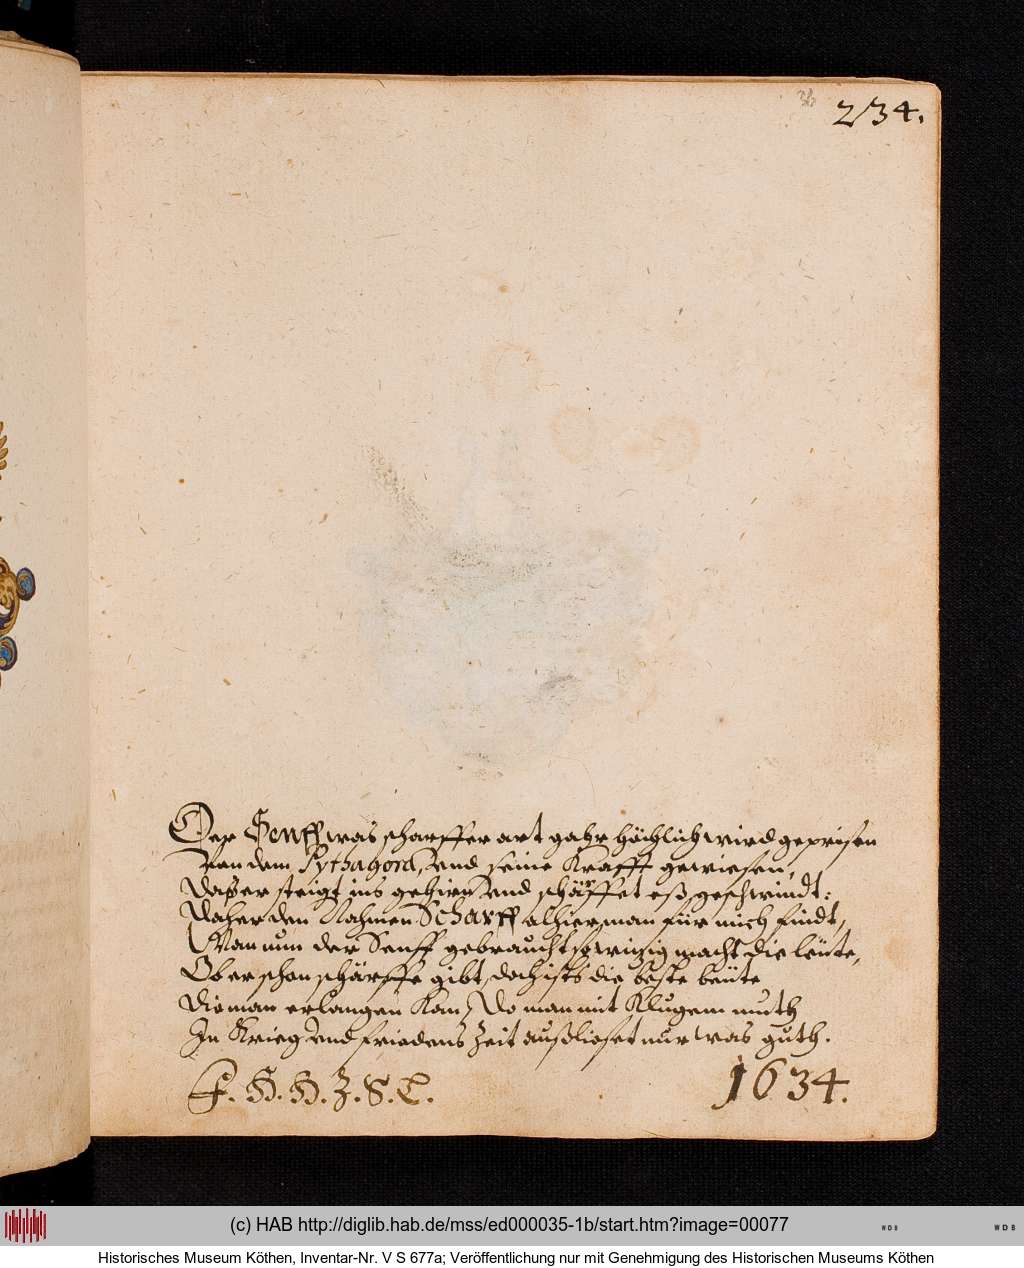 234.
Der Senff was scharffer art gahr höchlich wird geprisen
Von dem Pythagora, vnd seine Krafft gewiesen,
Daß er steigt ins gehirn vnd schärffet eß geschwindt:
Daher den Nahmen Scharff alhier man für mich findt,
Man nun der Senff gebraucht so witzig macht die leüte,
Ob er schon schärffe gibt, doch ists die beste beüte
Die man erlangen Kan, Do man mit Klugem muth
In Krieg vnd friedens Zeit außlieset nur was guth.
F. H. H. Z. S. C. 1634.
(c) HAB http://diglib.hab.de/mss/ed000035-1b/start.htm?image=00077
WDB
WDB
Historisches Museum Köthen, Inventar-Nr. V S 677a; Veröffentlichung nur mit Genehmigung des Historischen Museums Köthen